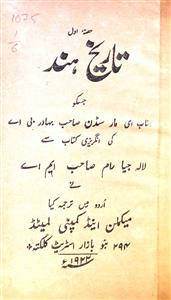 1075
1
6
حصۂ اول
تاریخ ہند
جسکو
ای مارسڈن صاحب بہادر بی اے
کی انگریزی کتاب سے
لالہ جیا رام صاحب ایم اے
نے
اردو میں ترجمہ کیا
میکملن اینڈ کمپنی لمیٹڈ
۲۹۴ بو بازار اسٹریٹ کلکتہ
۱۹۲۲ء